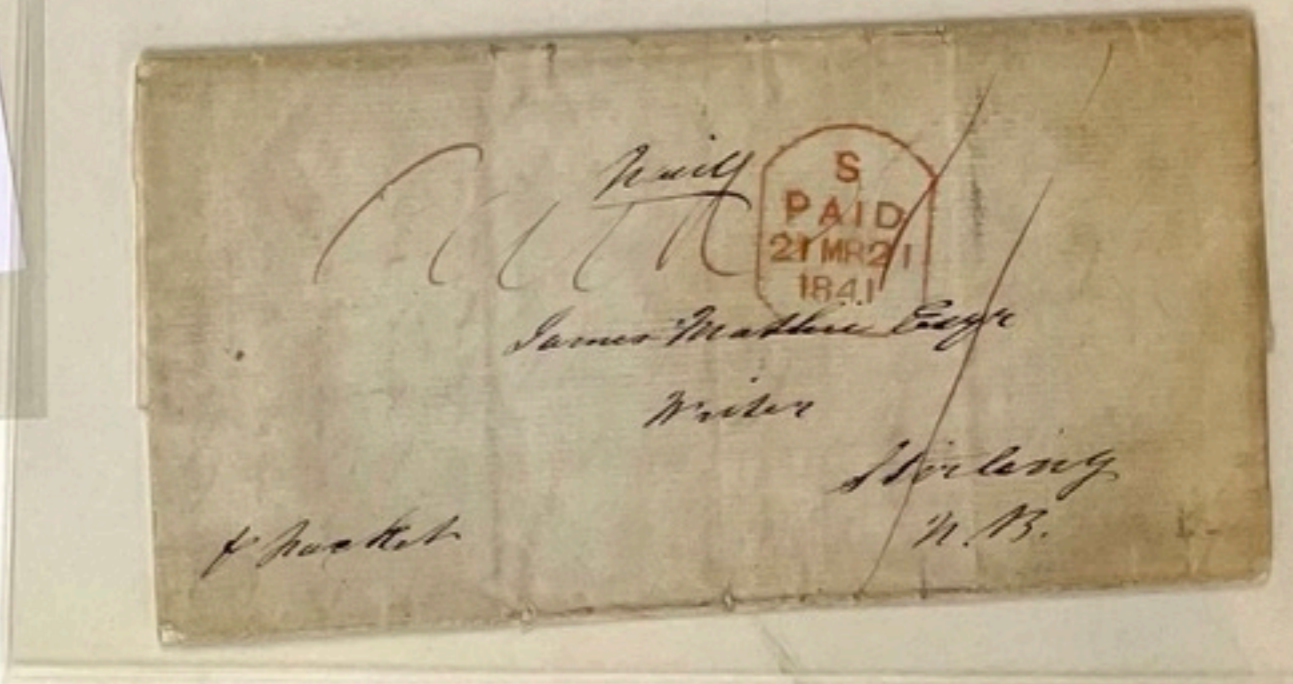 S
PAID
21 MR 21
1841
James Mathie Esqr
Writer
Stirling
N.B.
packet